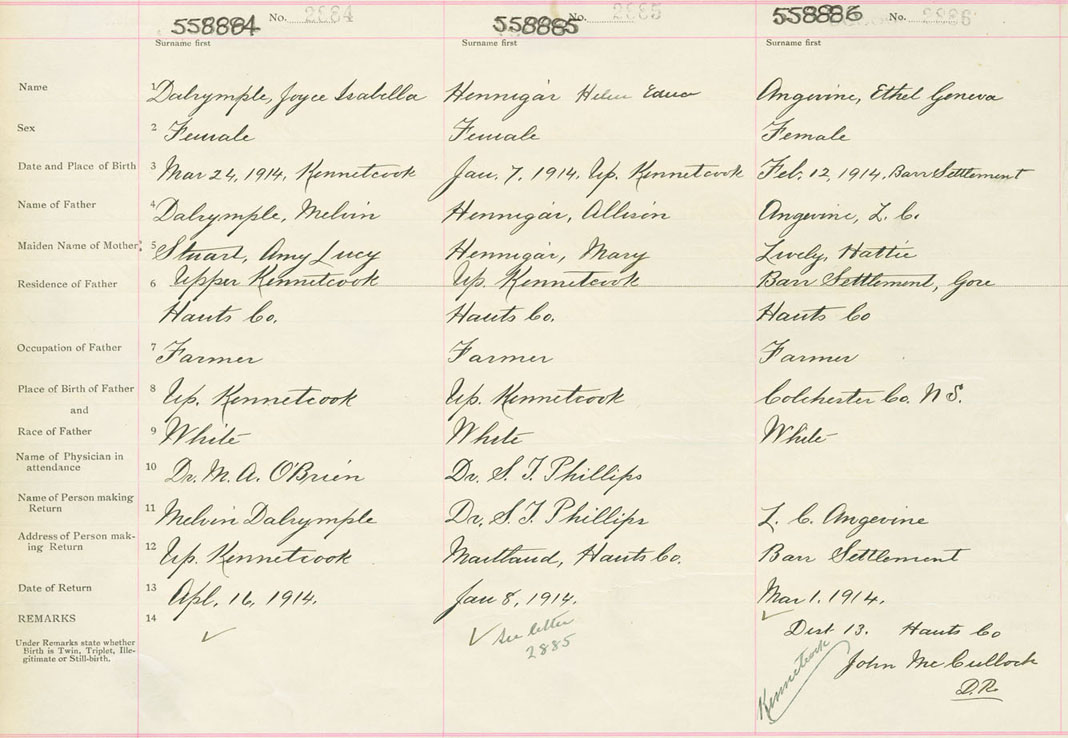 558884 No. 2884 558885 No. 2885 558886 No. 2886
Surname first Surname first Surname first
Name 1 Dalrymple, Joyce Isabella Hennigar Helen Edna Angevine, Ethel Geneva
Sex 2 Female Female Female
Date and Place of Birth 3 Mar 24, 1914, Kennetcook Jan. 7, 1914, Up. Kennetcook Feb. 12, 1914, Barr Settlement
Name of Father 4 Dalrymple, Melvin Hennigar, Allison Angevine, L. C.
Maiden Name of Mother 5 Stuart, Amy Lucy Hennigar, Mary Lively, Hattie
Residence of Father 6 Upper Kennetcook Up. Kennetcook Barr Settlement, Gore
Hants Co. Hants Co. Hants Co
Occupation of Father 7 Farmer Farmer Farmer
Place of Birth of Father 8 Up. Kennetcook Up. Kennetcook Colchester Co. N S.
and
Race of Father 9 White White White
Name of Physician in
attendance 10 Dr. M. A. O'Brien Dr. S. T. Phillips
Name of Person making
Return 11 Melvin Dalrymple Dr. S. T. Phillips L. C. Angevine
Address of Person mak-
ing Return 12 Up. Kennetcook Maitland, Hants Co. Barr Settlement
Date of Return 13 Apl. 16, 1914. Jan 8, 1914. Mar 1. 1914.
REMARKS 14 See letter Dist 13. Hants Co
2885
Under Remarks state whether
Birth is Twin, Triplet, Ille-
gitimate or Still-birth.
Kennetcook John McCullock
D.R.